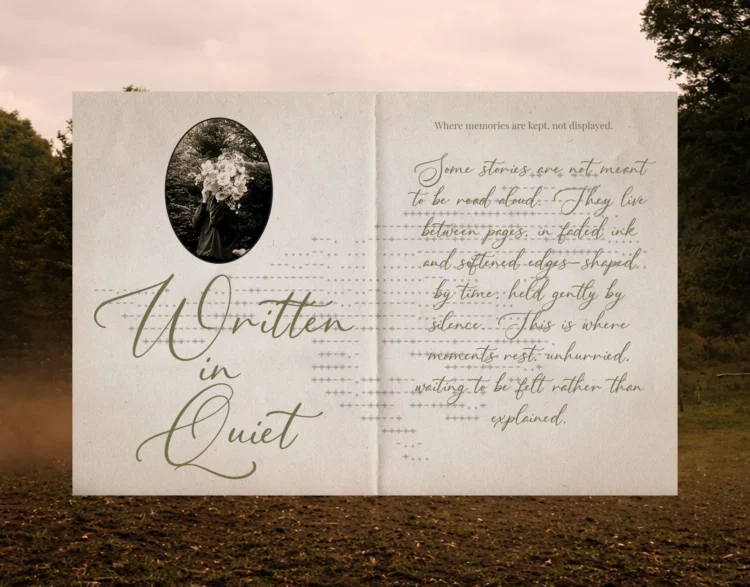 Written
in
Quiet
Where memories are kept, not displayed.
Some stories are not meant
to be read aloud. They live
between pages, in faded ink
and softened edges—shaped
by time, held gently by
silence. This is where
moments rest, unhurried,
waiting to be felt rather than
explained.